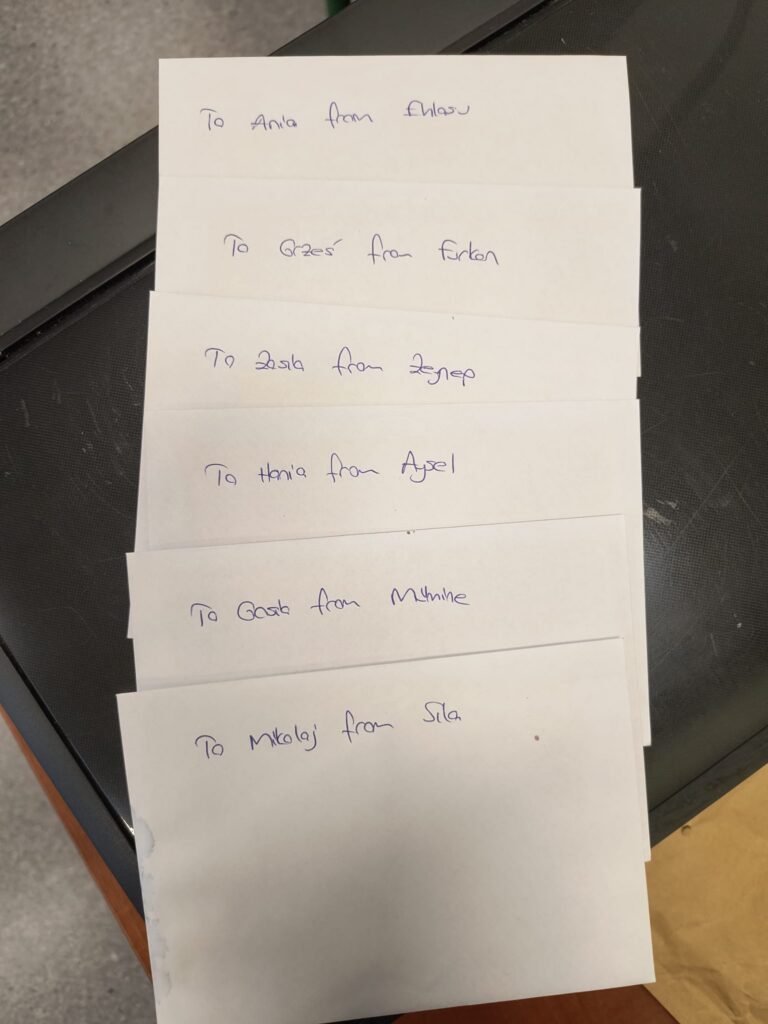 To Ania from Ehlasu
To Grześ from Furkan
To Zosia from Zeynep
To Hania from Aysel
To Gosia from Mümine
To Mikolaj from Sıla